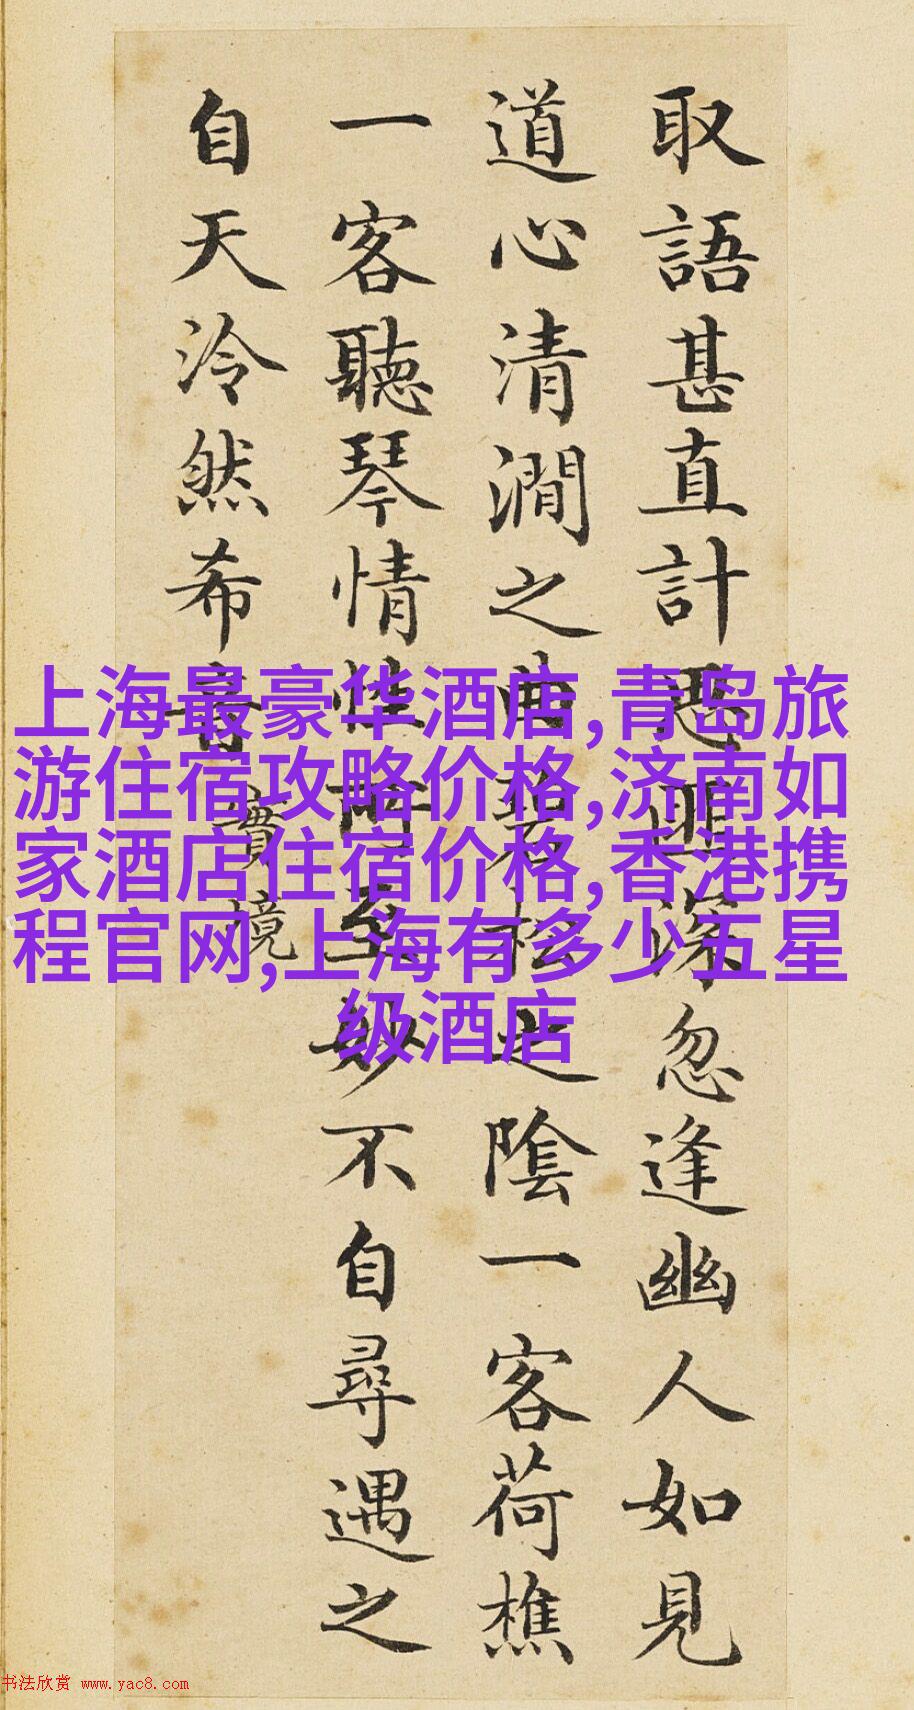 取語甚直計思匪深忽逢幽人如見
道心清澗之曲碧松之隂一客荷樵
一客聽琴情性所至妙不自尋遇之
自天泠然希音
實境
上海最豪华酒店,青岛旅
游住宿攻略价格,济南如
家酒店住宿价格,香港携
程官网,上海有多少五星
级酒店
书法欣赏 www.yac8.com